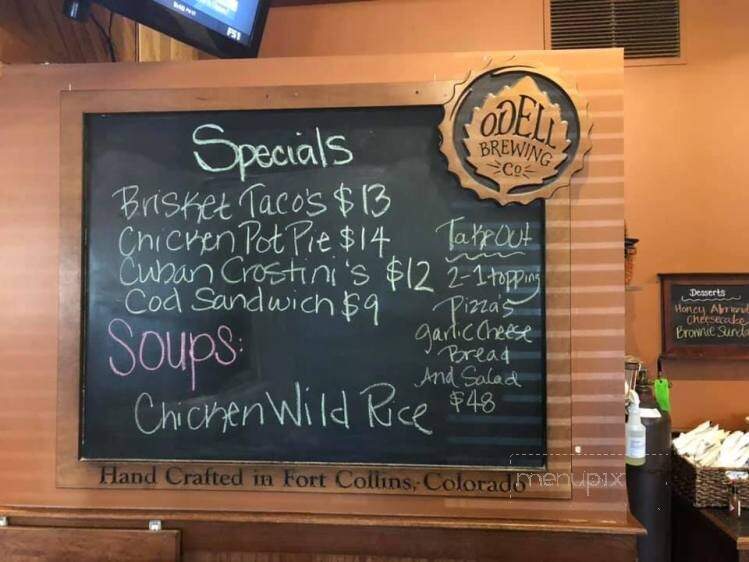 FS1
ODELL
BREWING
CO
Specials
Brisket Taco's $13
Chicken Pot Pie $14
Cuban Crostini's $12
Cod Sandwich $9
Soups:
Chicken Wild Rice
Take Out
2-1 topping
Pizza's
garlic cheese
Bread
And Salad
$48
Hand Crafted in Fort Collins, Colorado
Desserts
Honey Almond
Cheesecake
Brownie Sunda
menupix